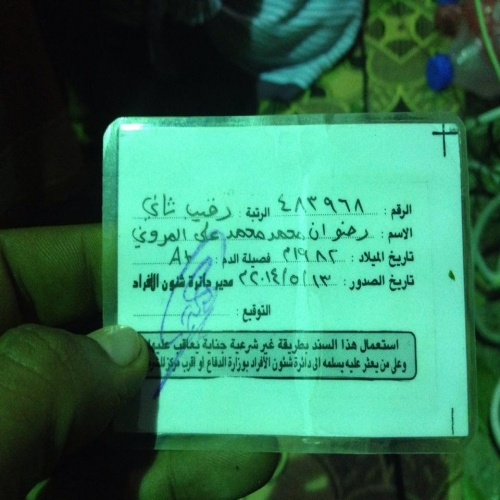 الرقم : ٤٨٣٩٦٨ الرتبة : رقيب ثاني
الاسم : رضوان محمد محمد علي المروني
تاريخ الميلاد : ١٩٨٢م فصيلة الدم : A+
تاريخ الصدور : ١٣/٥/٢٠١٤م مدير دائرة شئون الأفراد
التوقيع :
استعمال هذا السند بطريقة غير شرعية جناية يعاقب عليها
وعلى من يعثر عليه يسلمه الى دائرة شئون الأفراد بوزارة الدفاع أو أقرب مركز